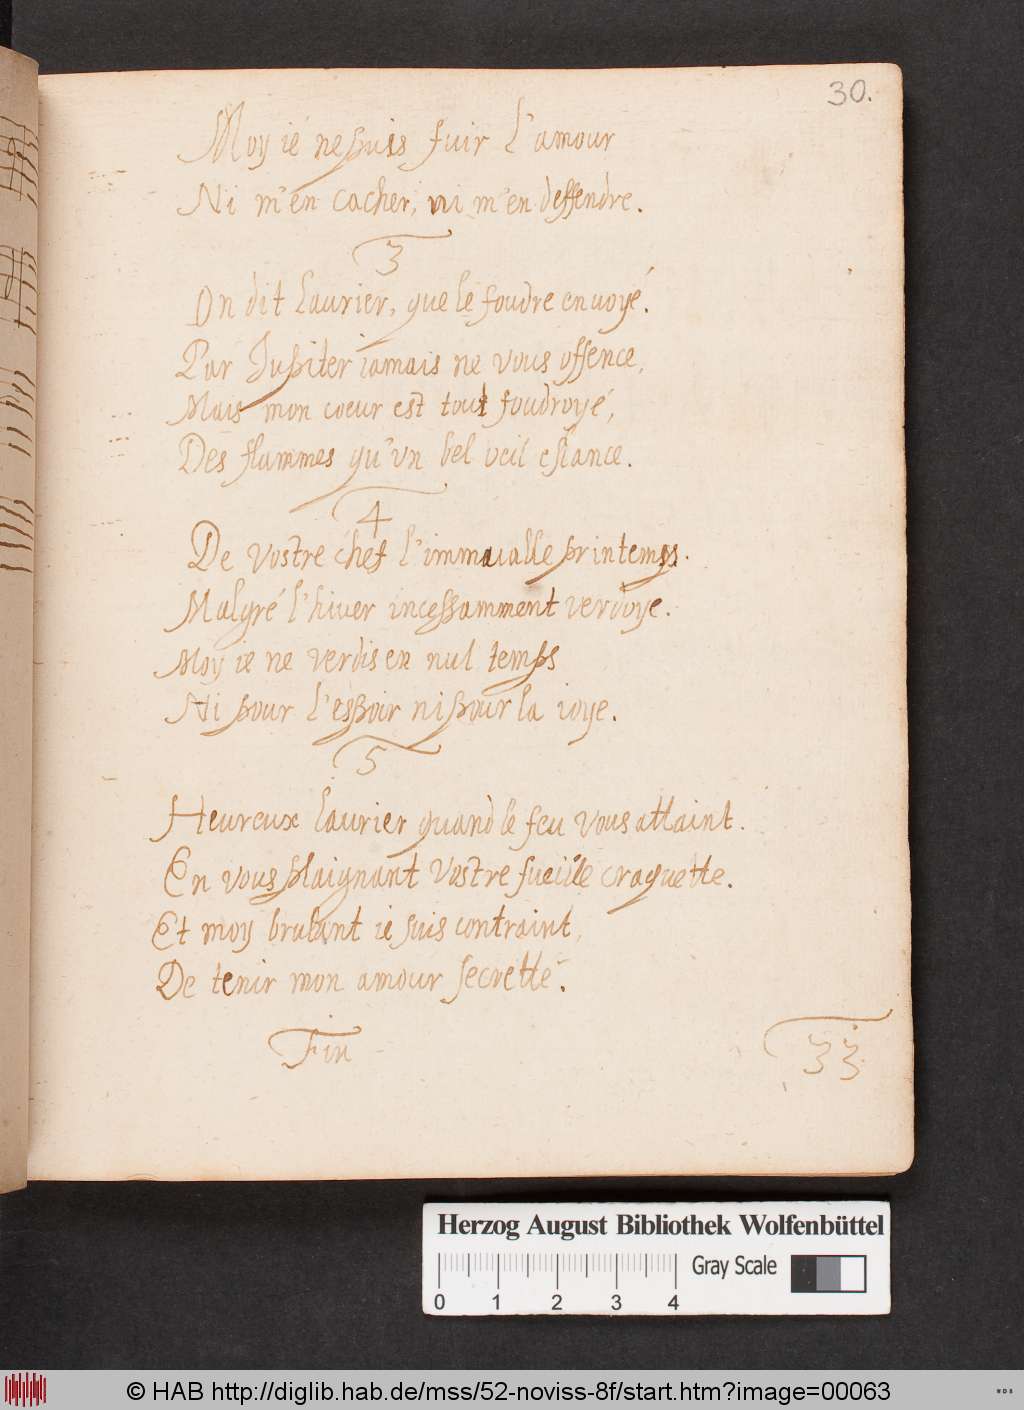 30.
Moy ié ne puis fuir l'amour
Ni m'en cacher, ni m'en deffendre.
3
On dit Laurier, que le foudre enuoyé.
Par Jupiter iamais ne vous offence,
Mais mon coeur est tout foudroyé,
Des flammes qu'vn bel oeil eslance.
4
De vostre chef l'immuable printemps.
Malgré l'hiver incessamment verdoye.
Moy ie ne verdis en nul temps
Ni pour l'espoir ni pour la ioye.
5
Heureux laurier quand le feu vous attaint.
En vous plaignant vostre fueille craquette.
Et moy brulant ie suis contraint,
De tenir mon amour secretté.
Fin
33
Herzog August Bibliothek Wolfenbüttel
Gray Scale
0 1 2 3 4
© HAB http://diglib.hab.de/mss/52-noviss-8f/start.htm?image=00063